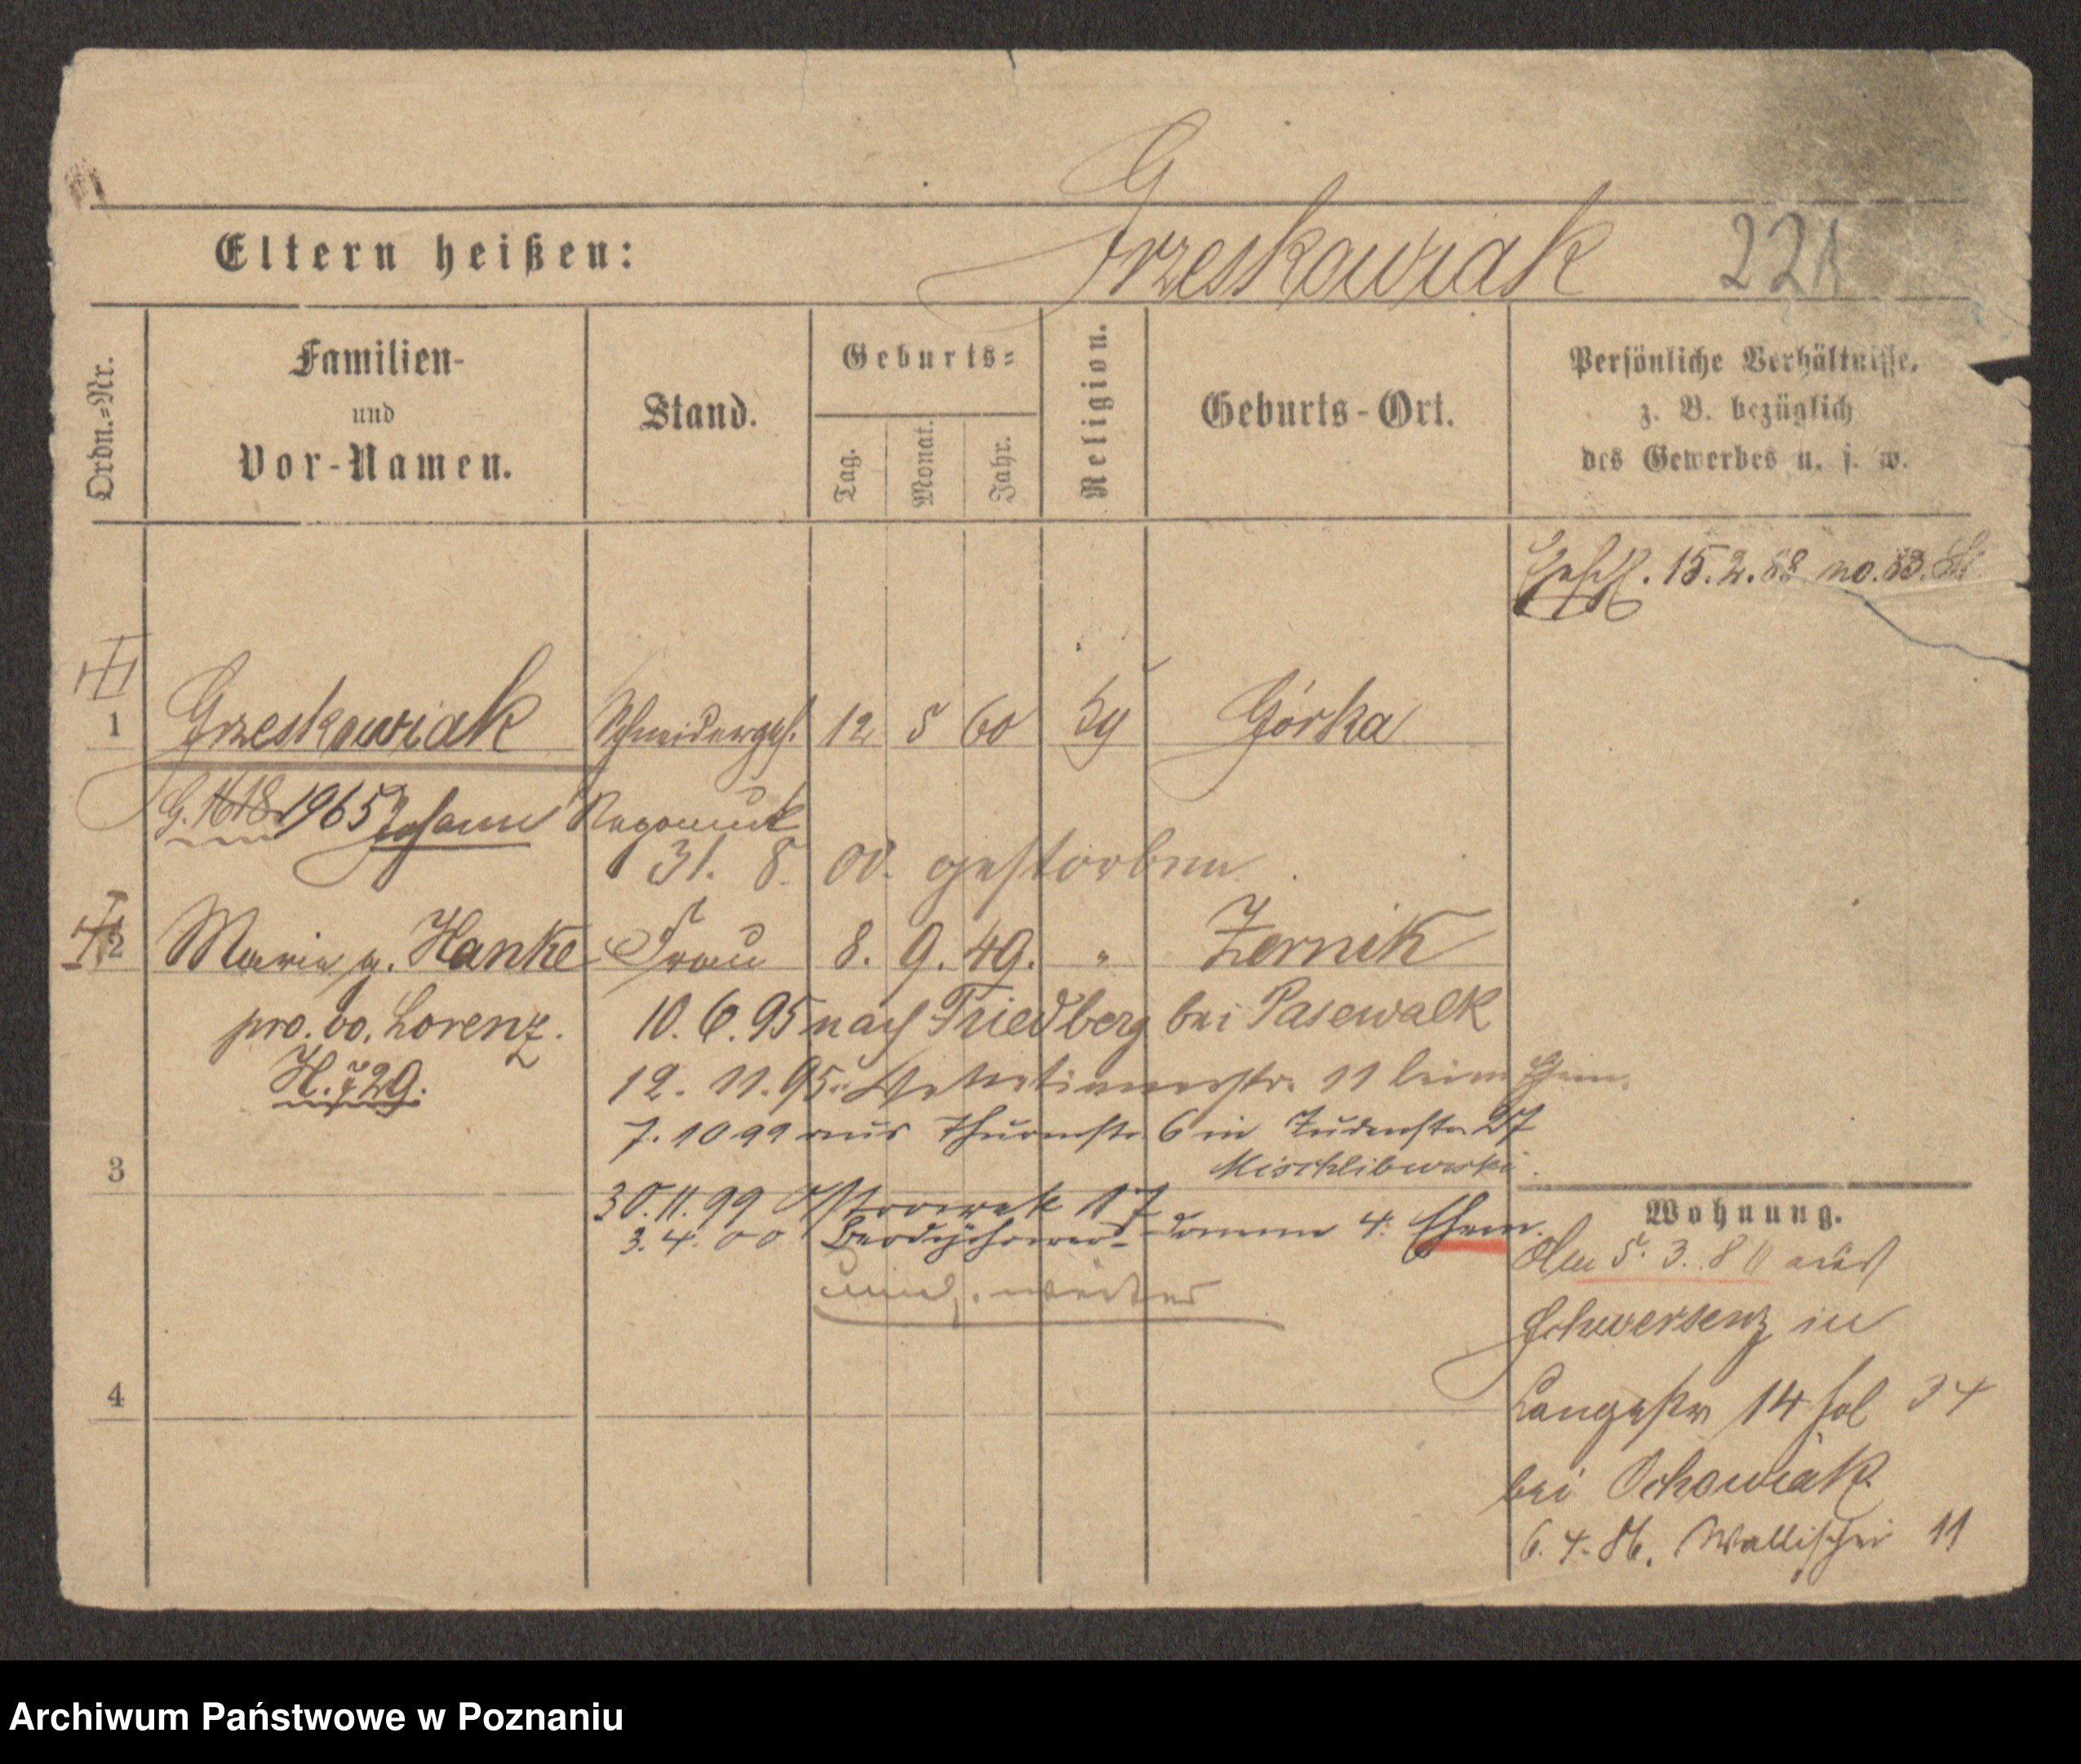 Eltern heißen:
Grzeskowiak
Ordn.=Nr.
Familien-
und
Vor-Namen.
Stand.
Geburts=
Tag.
Monat.
Jahr.
Religion.
Geburts-Ort.
Persönliche Verhältnisse,
z. B. bezüglich
des Gewerbes u. s. w.
15.2.88 no. 83.
1 Grzeskowiak Schneiderges. 12 5 60 Górka
1965 Johann Nepomuk
31. 8. 00. gestorben
2 Maria g. Hanke Frau 8. 9. 49. " Zernik
pro. vo. Lorenz.
10. 6. 95 nach Friedberg bei Pasewalk
12. 11. 95. 11 beim
7. 10 99 aus Thurmstr. 6 in Judenstr. 27
3
30. 11. 99 Ostrowek 17
3. 4. 00 4.
Wohnung.
Am 5. 3. aus
Schwersenz in
4
Langestr 14 fol 34
bei Ochowiak
6. 4. 86. Wallischei 11
Archiwum Państwowe w Poznaniu